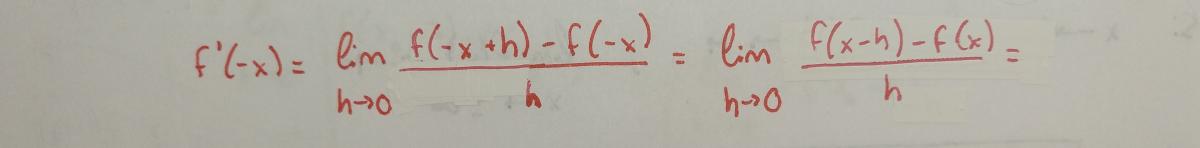 f'(-x) = lim h→0 f(-x+h) - f(-x) / h = lim h→0 f(x-h) - f(x) / h =